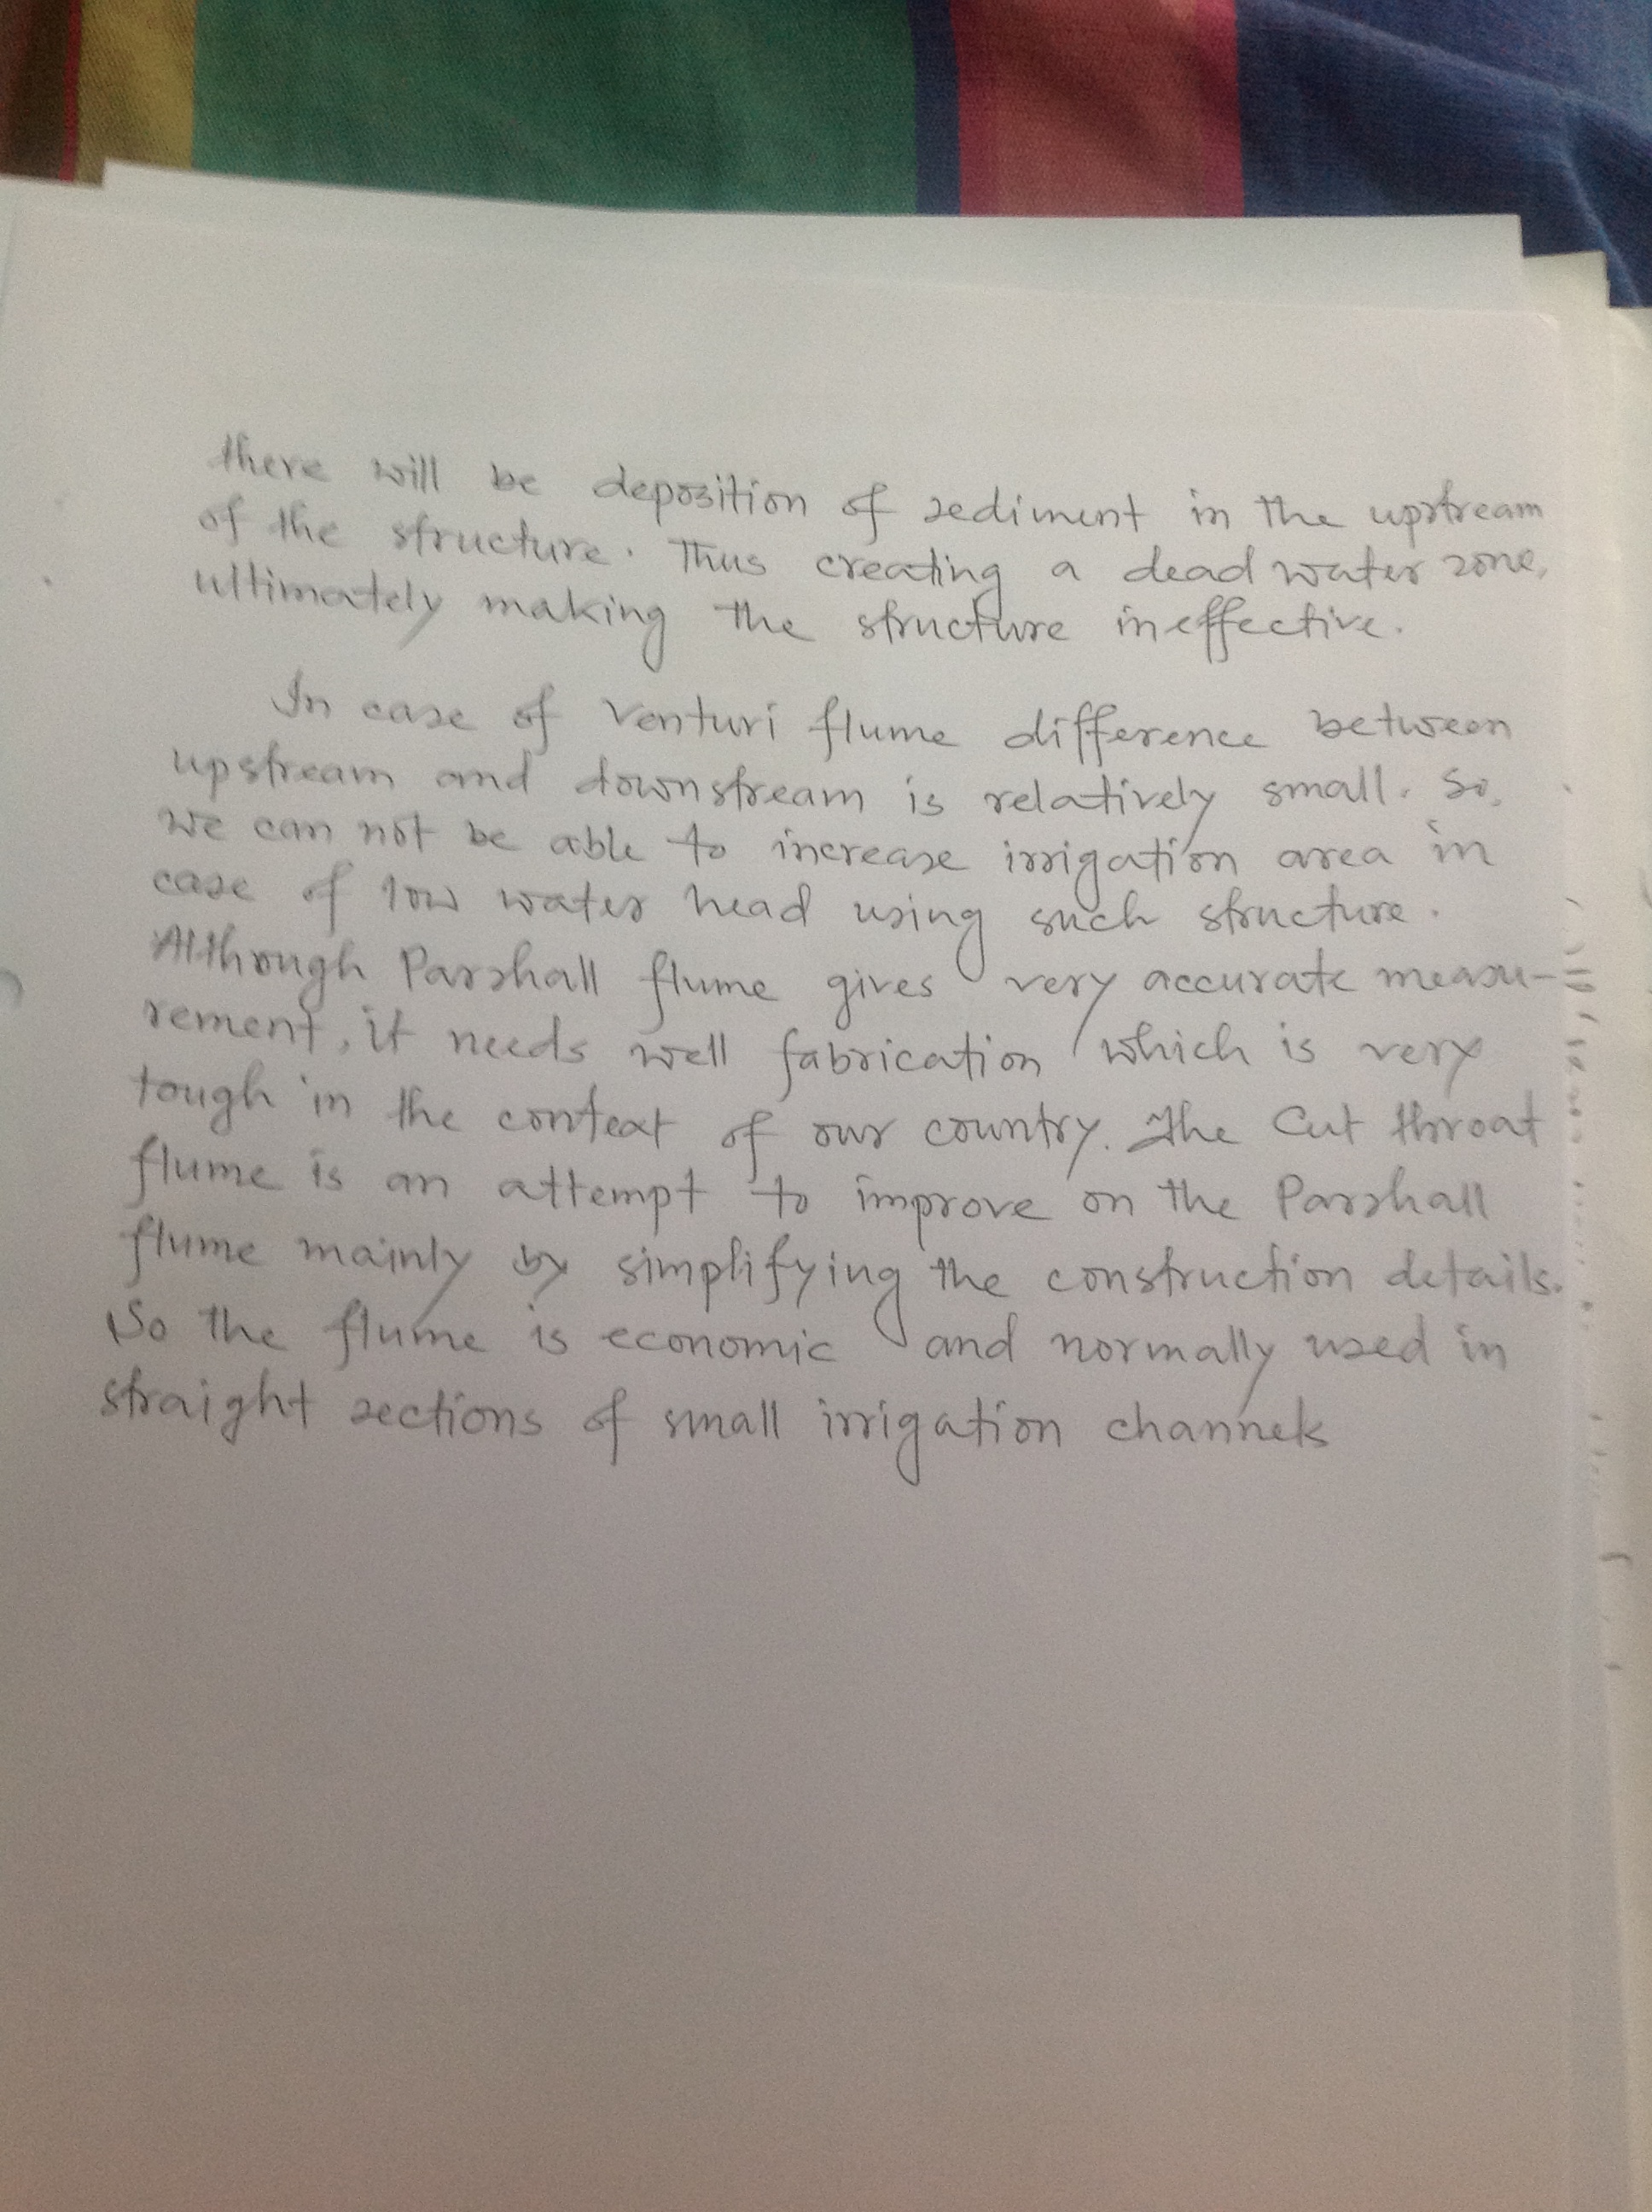 there will be deposition of sediment in the upstream
of the structure. Thus creating a dead water zone,
ultimately making the structure ineffective.
In case of Venturi flume difference between
upstream and downstream is relatively small. So,
we can not be able to increase irrigation area in
case of low water head using such structure.
Although Parshall flume gives very accurate measu-
rement, it needs well fabrication which is very
tough in the context of our country. The Cut throat
flume is an attempt to improve on the Parshall
flume mainly by simplifying the construction details.
So the flume is economic and normally used in
straight sections of small irrigation channels